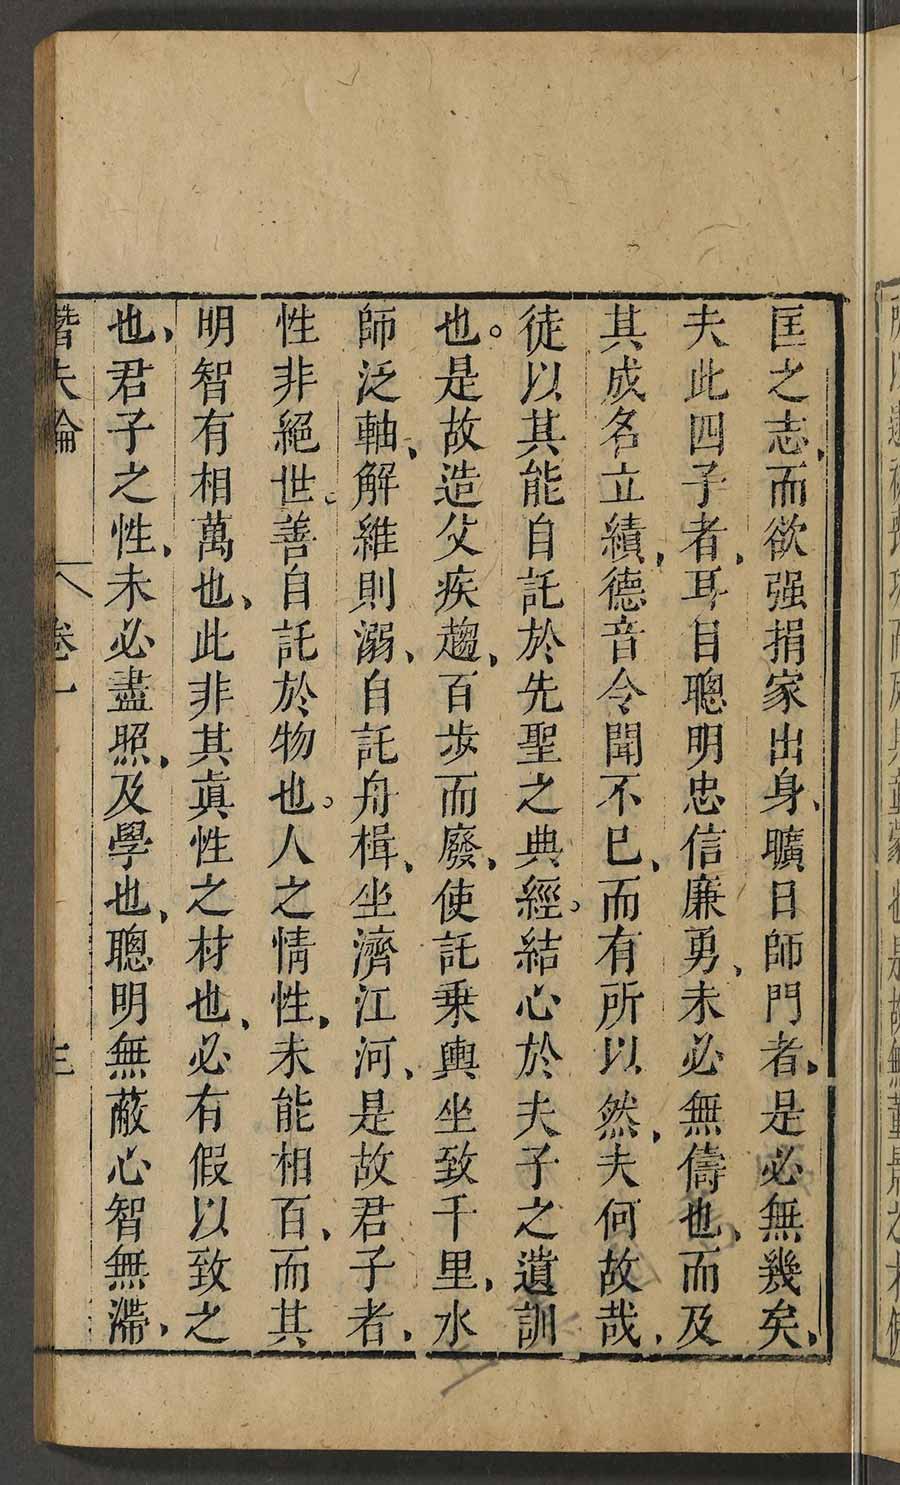 匡之志、而欲强捐家出身、曠日師門者、是必無幾矣、
夫此四子者、耳目聰明忠信廉勇、未必無儔也、而及
其成名立績、德音令聞不已、而有所以然、夫何故哉、
徒以其能自託於先聖之典經。結心於夫子之遺訓
也。是故造父疾趨、百步而廢、使託乗輿坐致千里、水
師泛軸、解維則溺、自託舟楫、坐濟江河、是故君子者、
性非絕世。善自託於物也。人之情性、未能相百、而其
明智有相萬也、此非其眞性之材也、必有假以致之
也、君子之性、未必盡照、及學也、聰明無蔽心智無滯、
潛夫論 卷一 三